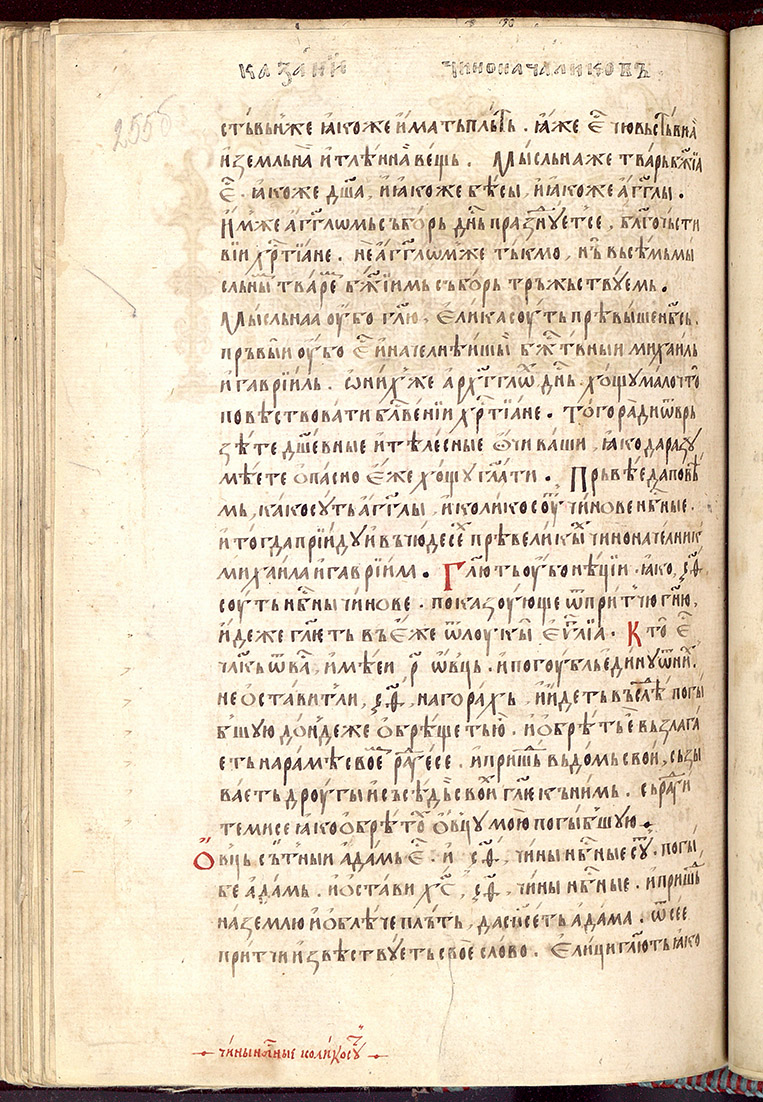 казанїи чиноначаликовъ
255б
стъвъиже ꙗкоже има тъ плъⷮ. ꙗже є҃ чювьствнаⷶ
и земльнаа и тлѣннаа вещь. Мысльнаже тварь бж҃їа
є҃. ꙗкоже дш҃а, и ꙗкоже бѣсы, и ꙗкоже агг҃лы.
Имже агг҃лѡмь съборь днⷭ҇ь празⷣнуетсе, бл҃гочьсти
вїи хрⷭ҇тїане. не агг҃лѡмже тъкмо, нѫ въсѣмь мы
слныⷨ тваре бж҃їимь съборь тръжьствуемь.
Мысльнаа оубо гл҃ю, єлика соуть прѣвыше нб҃сь.
пръвыи оубо є҃ и начелнѣишы бжⷭ҇твныи михаиль
и гаврїиль. ѡнихже архⷢ҇глѡⷡ днⷭ҇ь хощу мало что
повѣствовати блⷭ҇венїи хрⷭ҇тїане. Того радиѿврь
зѣте дш҃евные и тѣлесные ѻчи ваши, ꙗко да разу
мѣете опасно єже хощу гл҃ати. Пръвѣе да повѣ
мь, како суть агг҃лы, и колико соуⷮ чинове нб҃ные.
и тогда прїиду и въ чюдесеⷯ прѣвеликыⷯ чиноначелникь
михаила и гаврїила. Гл҃ють оубо нѣцїи ꙗко, ч҃ѳ
соуть нб҃ны чинове. показоующе ѿ притчю гн҃ю,
идеже гл҃еть въ єже ѿ лоукы єѵⷢ҇лїа. Кто є҃
чл҃кь ѿ ва, имѣеи р҃ ѡвьць. и погоубль єдину ѿ ниⷯ.
не оставит ли, ч҃ѳ, на гораⷯ, и идеть въслⷣѣ погы
бшую дондеже обрѣщеть ю. и обрѣть є възлага
еть на рамѣ своеⷨ раⷣуесе. и пришⷣь въ домь свои, съзы
ваеть дроугы и съсѣдⷣы свои гл҃е къ нимь. сърадⷣи
темисе ꙗко обрѣтоⷯ ѻвцу мою погыбшую.
Ѻвць сътныи адамь є҃. и ч҃ѳ, чины нб҃ные суⷮ. погы
бе адамь. и остави хс҃, ч҃ѳ, чины нб҃ные. и пришⷣь
на землю и облѣче плъть, да сп҃сеть адама. ѿ сее
притчи извѣствуеть свое слово. Єлици гл҃ють ꙗко
чины нб҃ные колико суⷮ